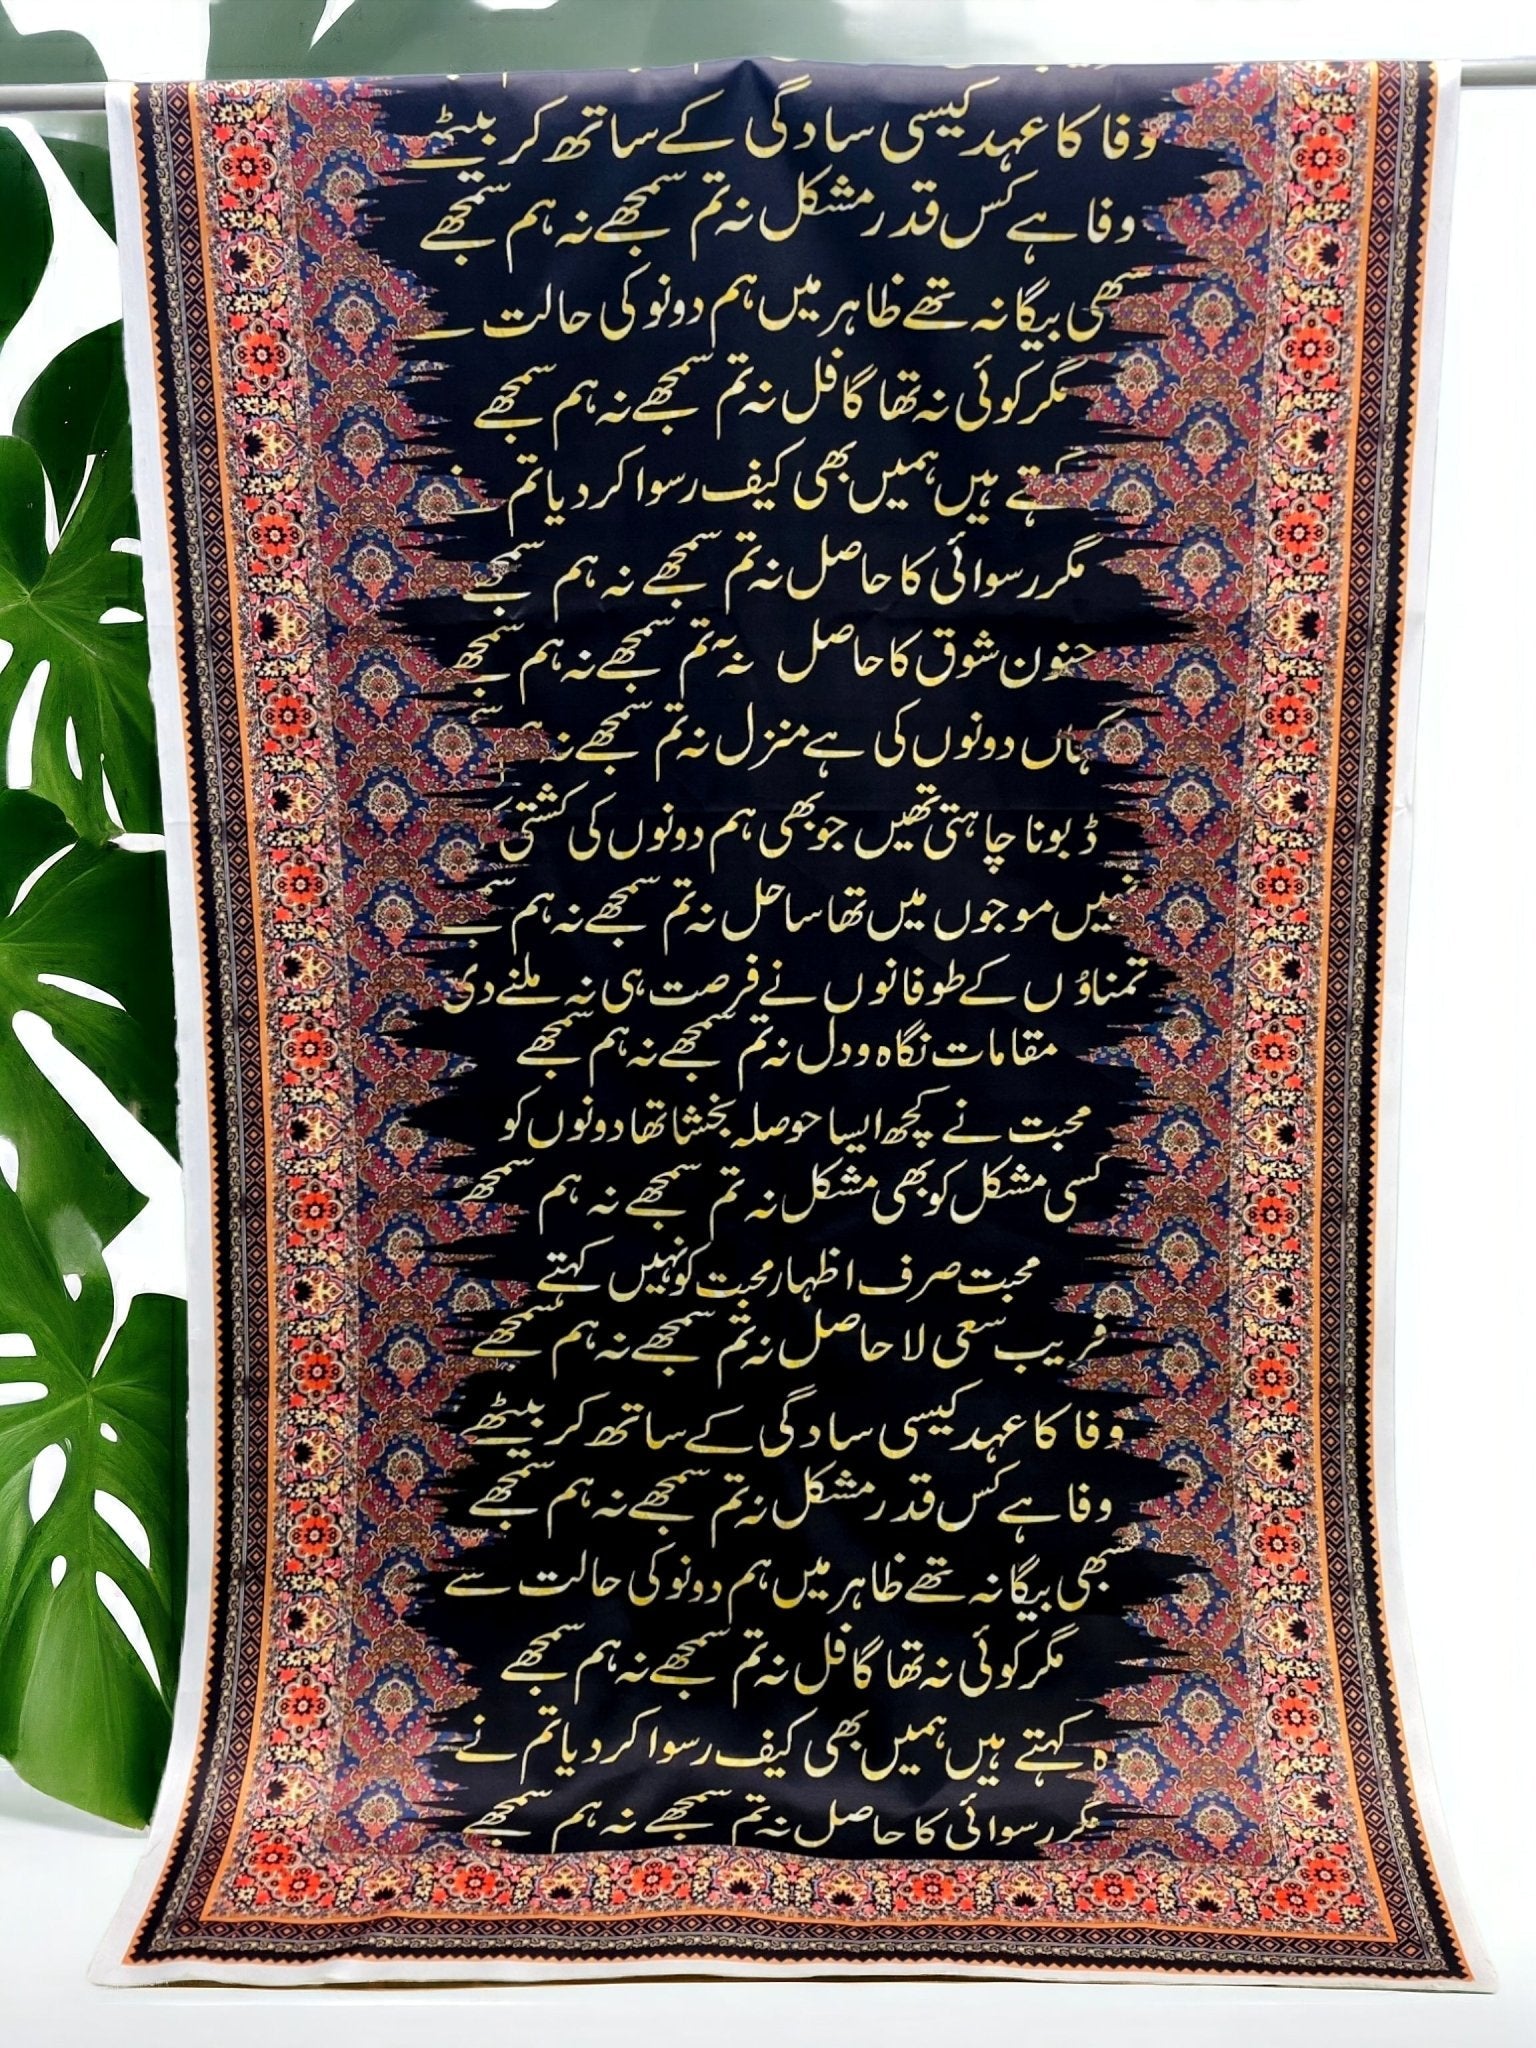 وفا کا عہد کیسی سادگی کے ساتھ کر بیٹھے
وفا ہے کس قدر مشکل نہ تم سمجھے نہ ہم سمجھے
سبھی بیگانہ تھے ظاہر میں ہم دونو کی حالت سے
مگر کوئی نہ تھا گافل نہ تم سمجھے نہ ہم سمجھے
کہتے ہیں ہمیں بھی کیف رسوا کر دیا تم نے
مگر رسوائی کا حاصل نہ تم سمجھے نہ ہم سمجھے
جنون شوق کا حاصل نہ تم سمجھے نہ ہم سمجھے
کہاں دونوں کی ہے منزل نہ تم سمجھے نہ
ڈبونا چاہتی تھیں جو بھی ہم دونوں کی کشتی
نہیں موجوں میں تھا ساحل نہ تم سمجھے نہ ہم
تمناؤں کے طوفانوں نے فرصت ہی نہ ملنے دی
مقامات نگاہ و دل نہ تم سمجھے نہ ہم سمجھے
محبت نے کچھ ایسا حوصلہ بخشا تھا دونوں کو
کسی مشکل کو بھی مشکل نہ تم سمجھے نہ ہم سمجھے
محبت صرف اظہار محبت کو نہیں کہتے
فریب سعی لا حاصل نہ تم سمجھے نہ ہم سمجھے
وفا کا عہد کیسی سادگی کے ساتھ کر بیٹھے
وفا ہے کس قدر مشکل نہ تم سمجھے نہ ہم سمجھے
سبھی بیگانہ تھے ظاہر میں ہم دونو کی حالت سے
مگر کوئی نہ تھا گافل نہ تم سمجھے نہ ہم سمجھے
کہتے ہیں ہمیں بھی کیف رسوا کر دیا تم نے
مگر رسوائی کا حاصل نہ تم سمجھے نہ ہم سمجھے